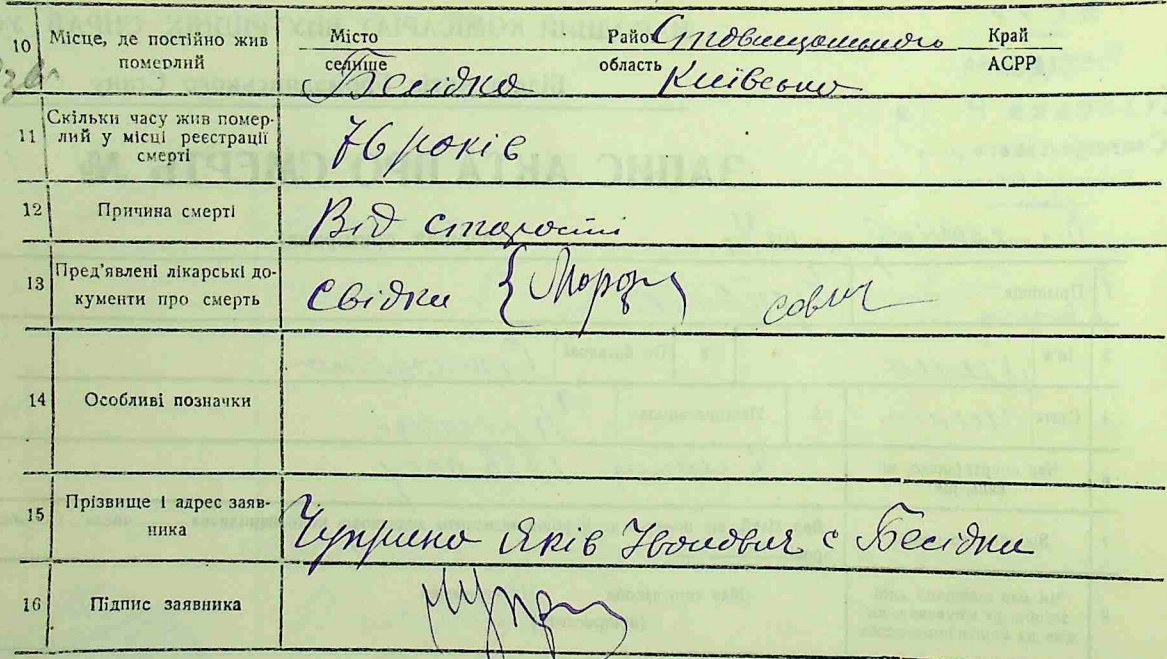 10 Місце, де постійно жив померлий Місто Район Ставищанського Край
селище Бесідка область Київська АСРР
11 Скільки часу жив помер-
лий у місці реєстрації
смерті 76 років
12 Причина смерті Від старости
13 Пред'явлені лікарські до-
кументи про смерть Свідки { Мороз
14 Особливі позначки
15 Прізвище і адрес заяв-
ника Чуприна Яків Іванович с Бесідки
16 Підпис заявника
ЗАПИС АКТА ПРО СМЕРТЬ №